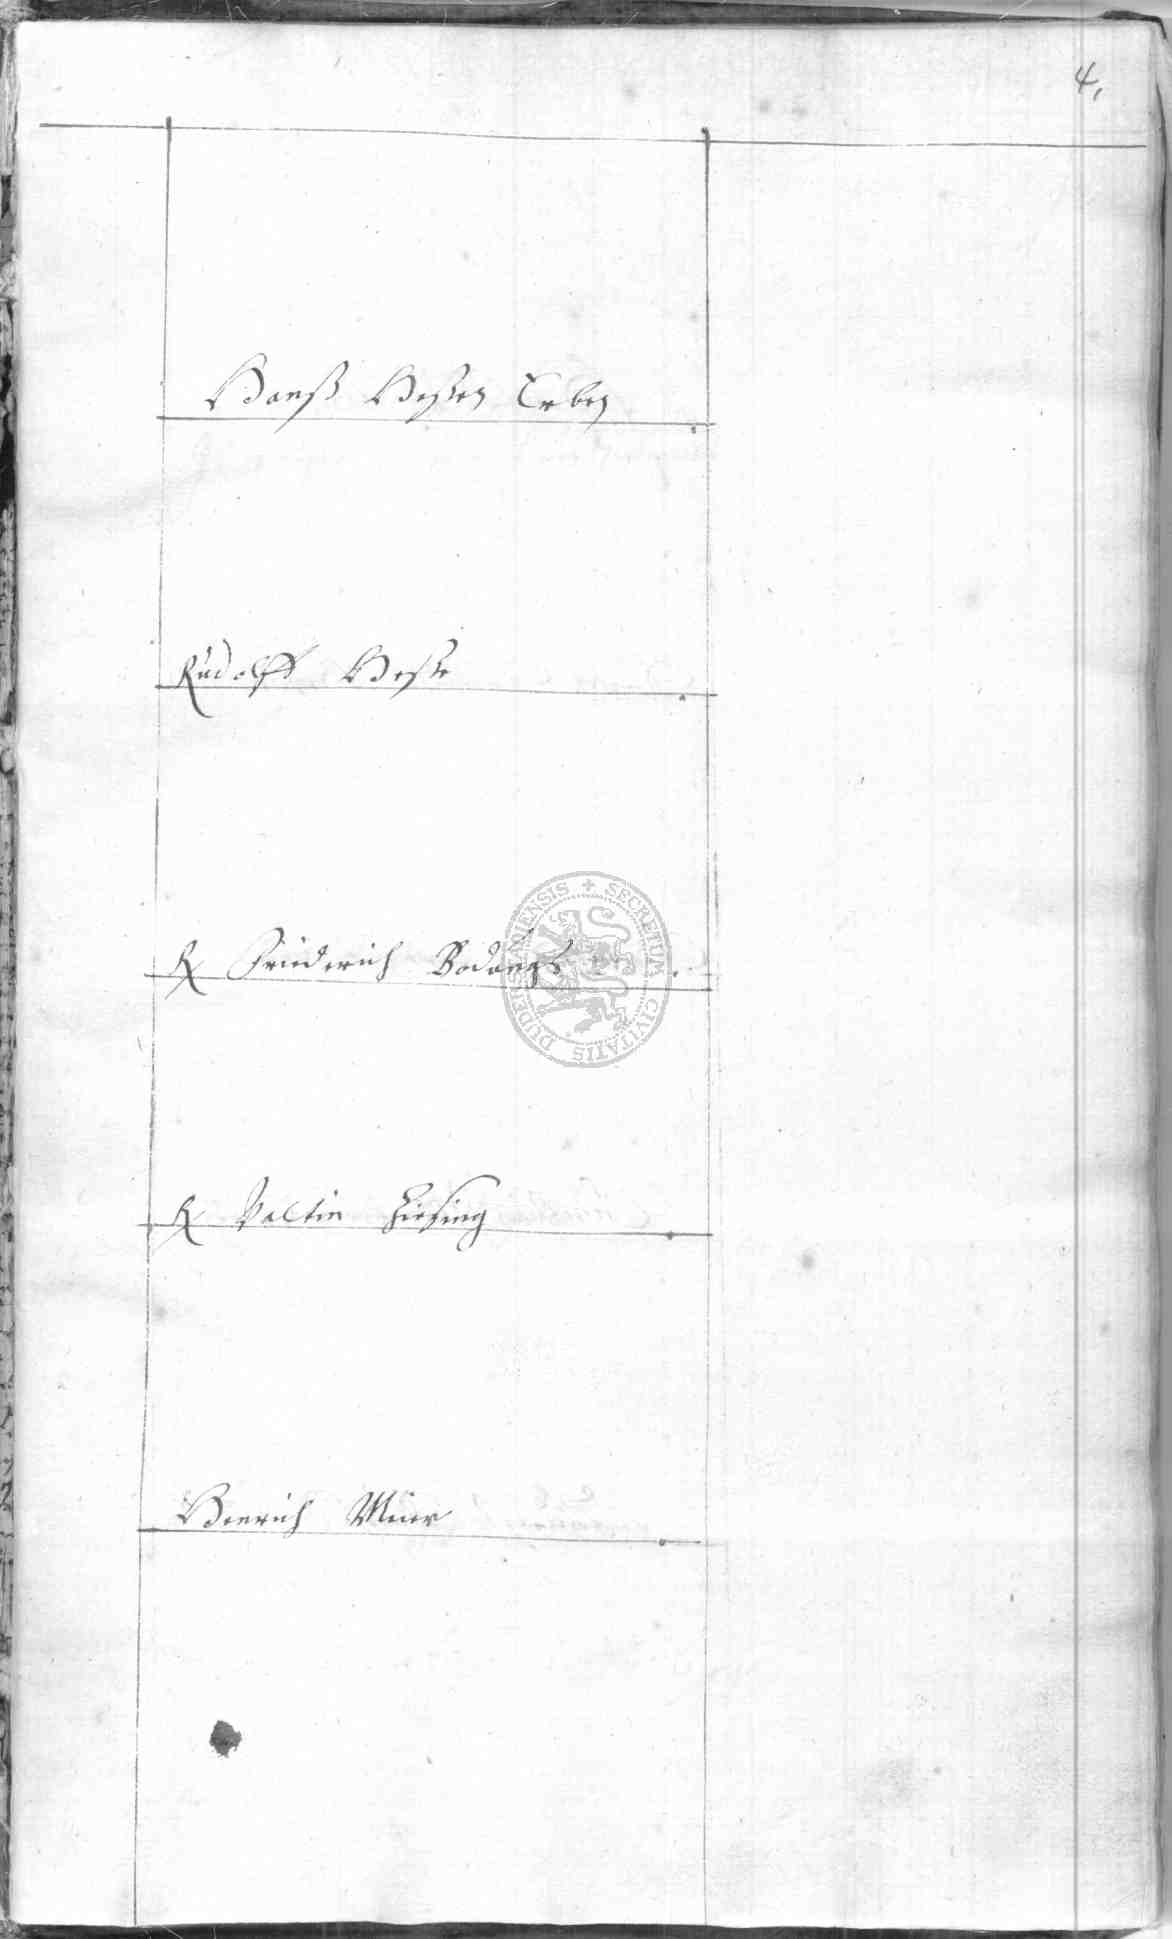 4.
Hanß Hessen Erben
Rudolff Hesse
R Friederich Bodanß
R Valtin Hiesing
Henrich Meier
SECRETUM CIVITATIS DUDERSTADIENSIS